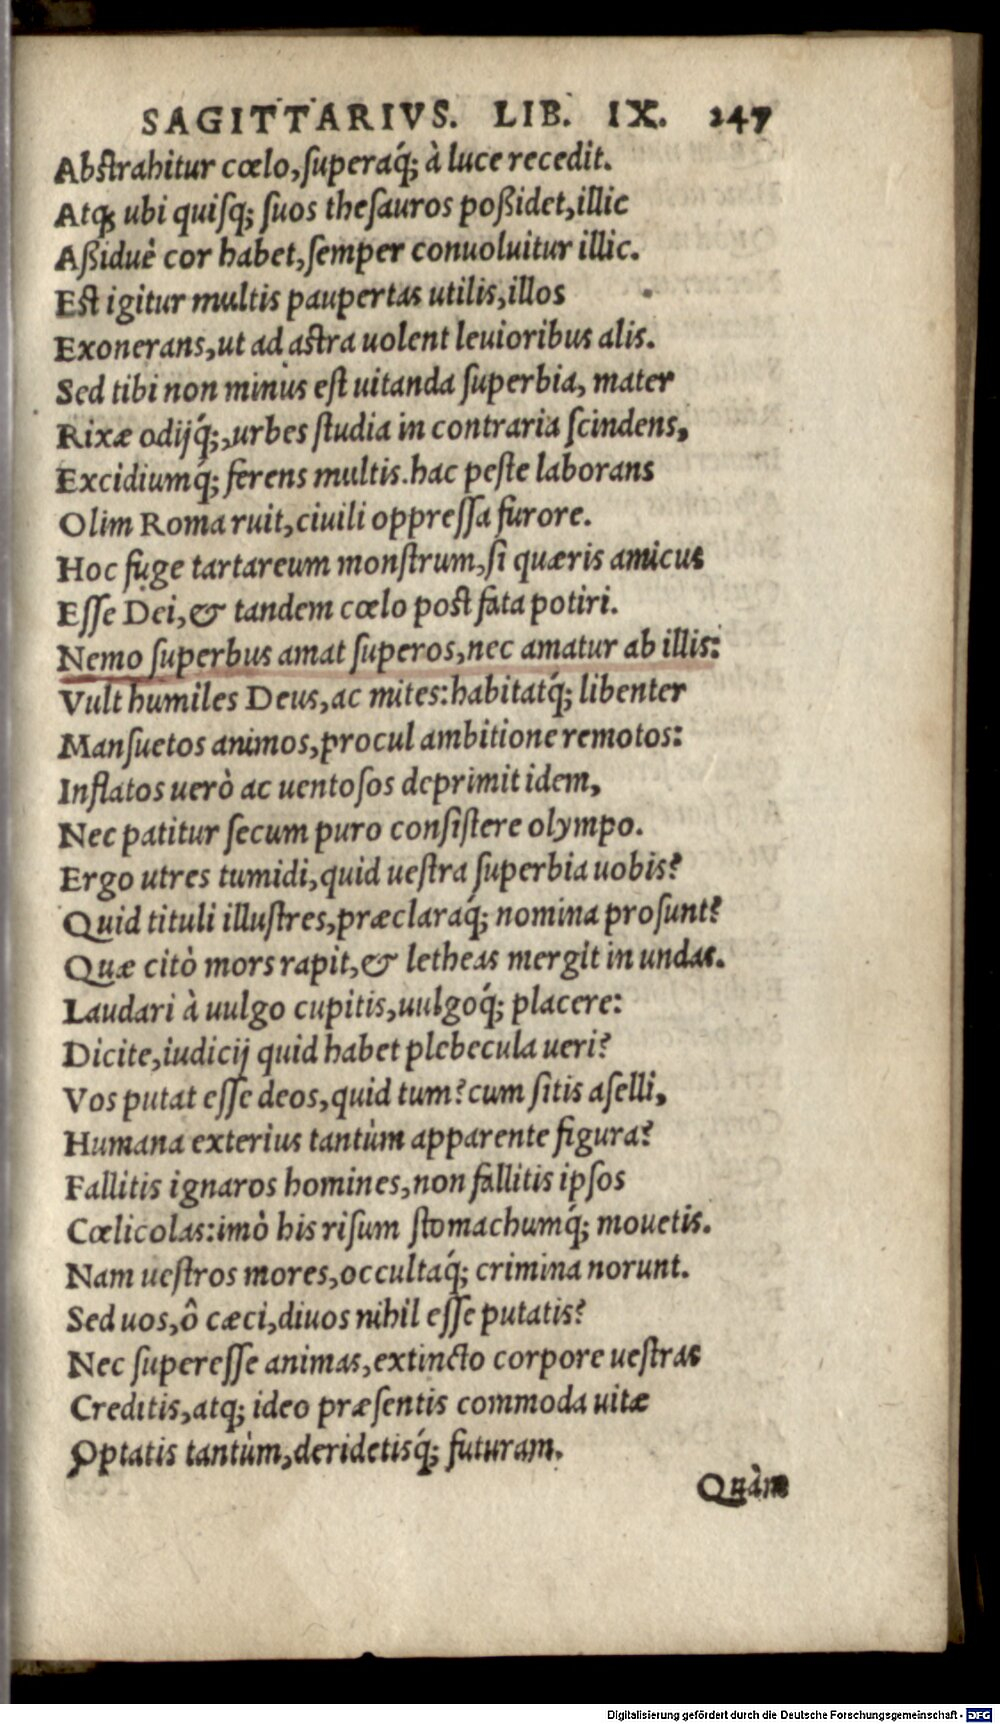 SAGITTARIVS. LIB. IX. 247
Abstrahitur cœlo, superaq́; à luce recedit.
Atq; ubi quisq; suos thesauros poßidet, illic
Aßiduè cor habet, semper conuoluitur illic.
Est igitur multis paupertas utilis, illos
Exonerans, ut ad astra uolent leuioribus alis.
Sed tibi non minus est uitanda superbia, mater
Rixæ odijq́;, urbes studia in contraria scindens,
Excidiumq́; ferens multis. hac peste laborans
Olim Roma ruit, ciuili oppressa furore.
Hoc fuge tartareum monstrum, si quæris amicus
Esse Dei, & tandem cœlo post fata potiri.
Nemo superbus amat superos, nec amatur ab illis:
Vult humiles Deus, ac mites: habitatq́; libenter
Mansuetos animos, procul ambitione remotos:
Inflatos uerò ac uentosos deprimit idem,
Nec patitur secum puro consistere olympo.
Ergo utres tumidi, quid uestra superbia uobis?
Quid tituli illustres, præclaraq́; nomina prosunt?
Quæ citò mors rapit, & letheas mergit in undas.
Laudari à uulgo cupitis, uulgoq́; placere:
Dicite, iudicij quid habet plebecula ueri?
Vos putat esse deos, quid tum? cum sitis aselli,
Humana exterius tantùm apparente figura?
Fallitis ignaros homines, non fallitis ipsos
Cœlicolas: imò his risum stomachumq́; mouetis.
Nam uestros mores, occultaq́; crimina norunt.
Sed uos, ô cæci, diuos nihil esse putatis?
Nec superesse animas, extincto corpore uestras
Creditis, atq; ideo præsentis commoda uitæ
Optatis tantùm, deridetisq́; futuram.
Quàm
Digitalisierung gefördert durch die Deutsche Forschungsgemeinschaft - DFG